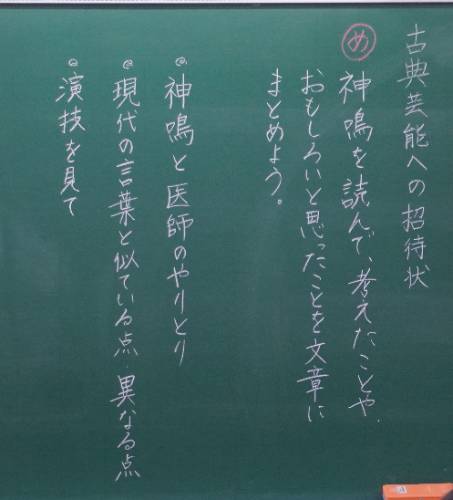 古典芸能への招待状
め 神鳴を読んで、考えたことや、
おもしろいと思ったことを文章に
まとめよう。
・神鳴と医師のやりとり
・現代の言葉と似ている点 異なる点
・演技を見て